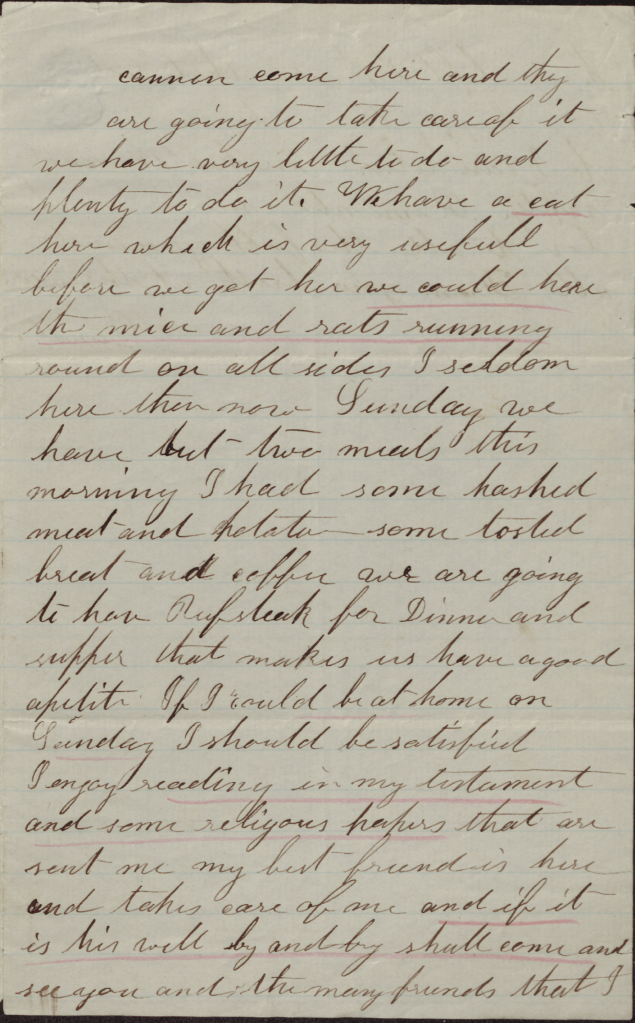 cannon come here and thy
are going to take care of it
we have very little to do and
plenty to do it. We have a cat
here which is very usefull
before we got her we could here
the mice and rats running
round on all sides I seldom
here them now Sunday we
have but two meals this
morning I had some hashed
meat and potato some tosted
breat and coffee we are going
to have Beefsteak for Dinner and
supper that makes us have a good
apetite If I could be at home on
Sunday I should be satisfied
I enjoy reading in my testament
and some religous papers that are
sent me my best friend is here
and takes care of me and if it
is his will by and by shall come and
see you and the many friends that I